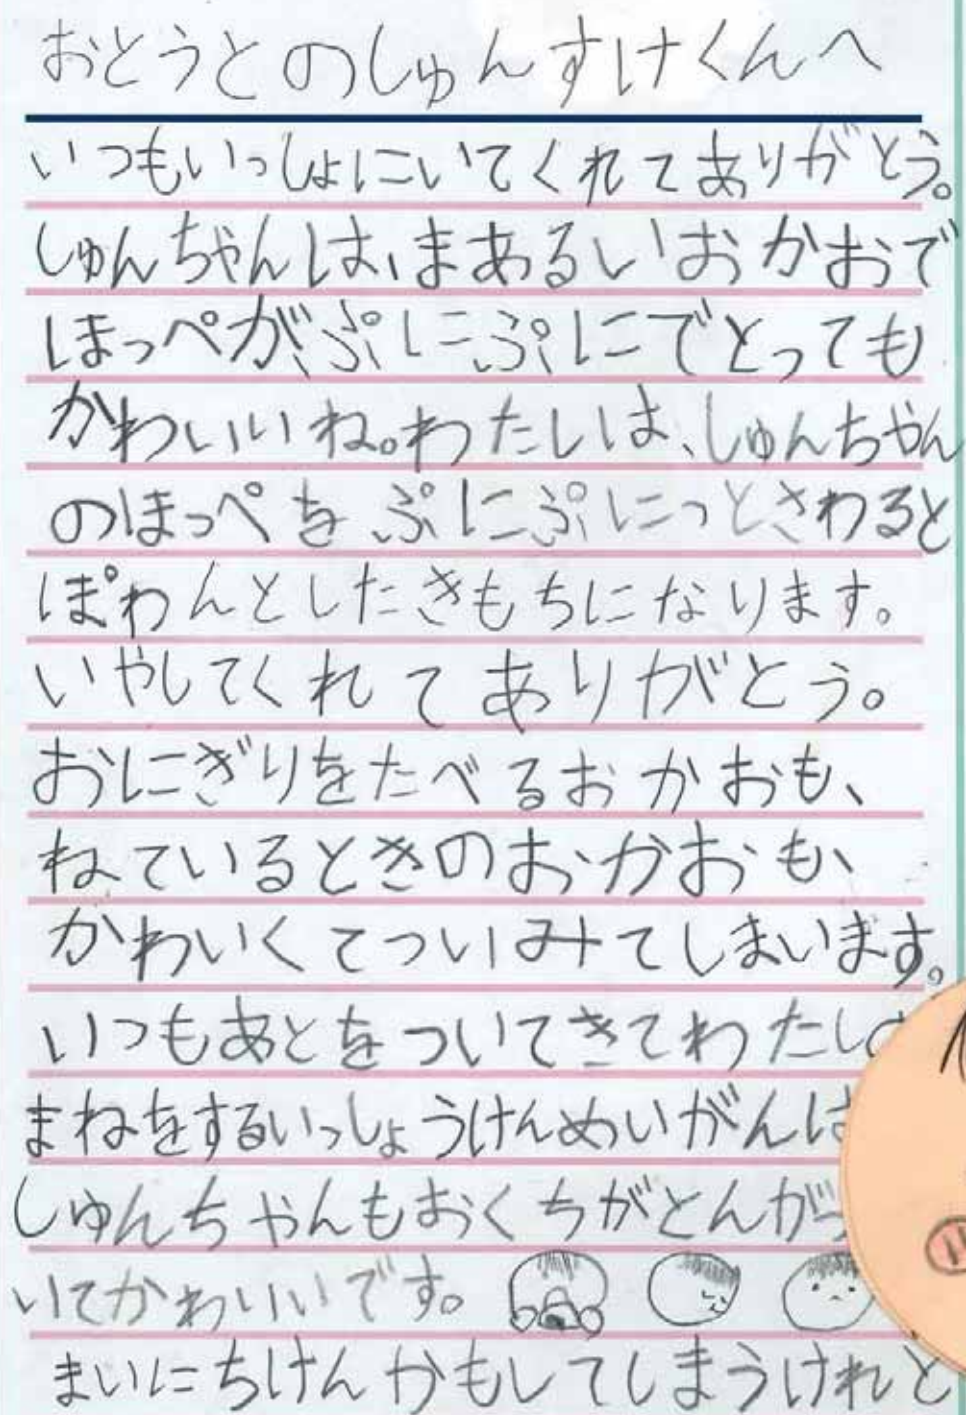 おとうとのしゅんすけくんへ
いつもいっしょにいてくれてありがとう。
しゅんちゃんは、まあるいおかおで
ほっぺがぷにぷにでとっても
かわいいね。わたしは、しゅんちゃん
のほっぺをぷにぷにっとさわると
ぽわんとしたきもちになります。
いやしてくれてありがとう。
おにぎりをたべるおかおも、
ねているときのおかおも、
かわいくてついみてしまいます。
いつもあとをついてきてわたし
まねをするいっしょうけんめいがん
しゅんちゃんもおくちがとんが
いてかわいいです。
まいにちけんかもしてしまうけれと